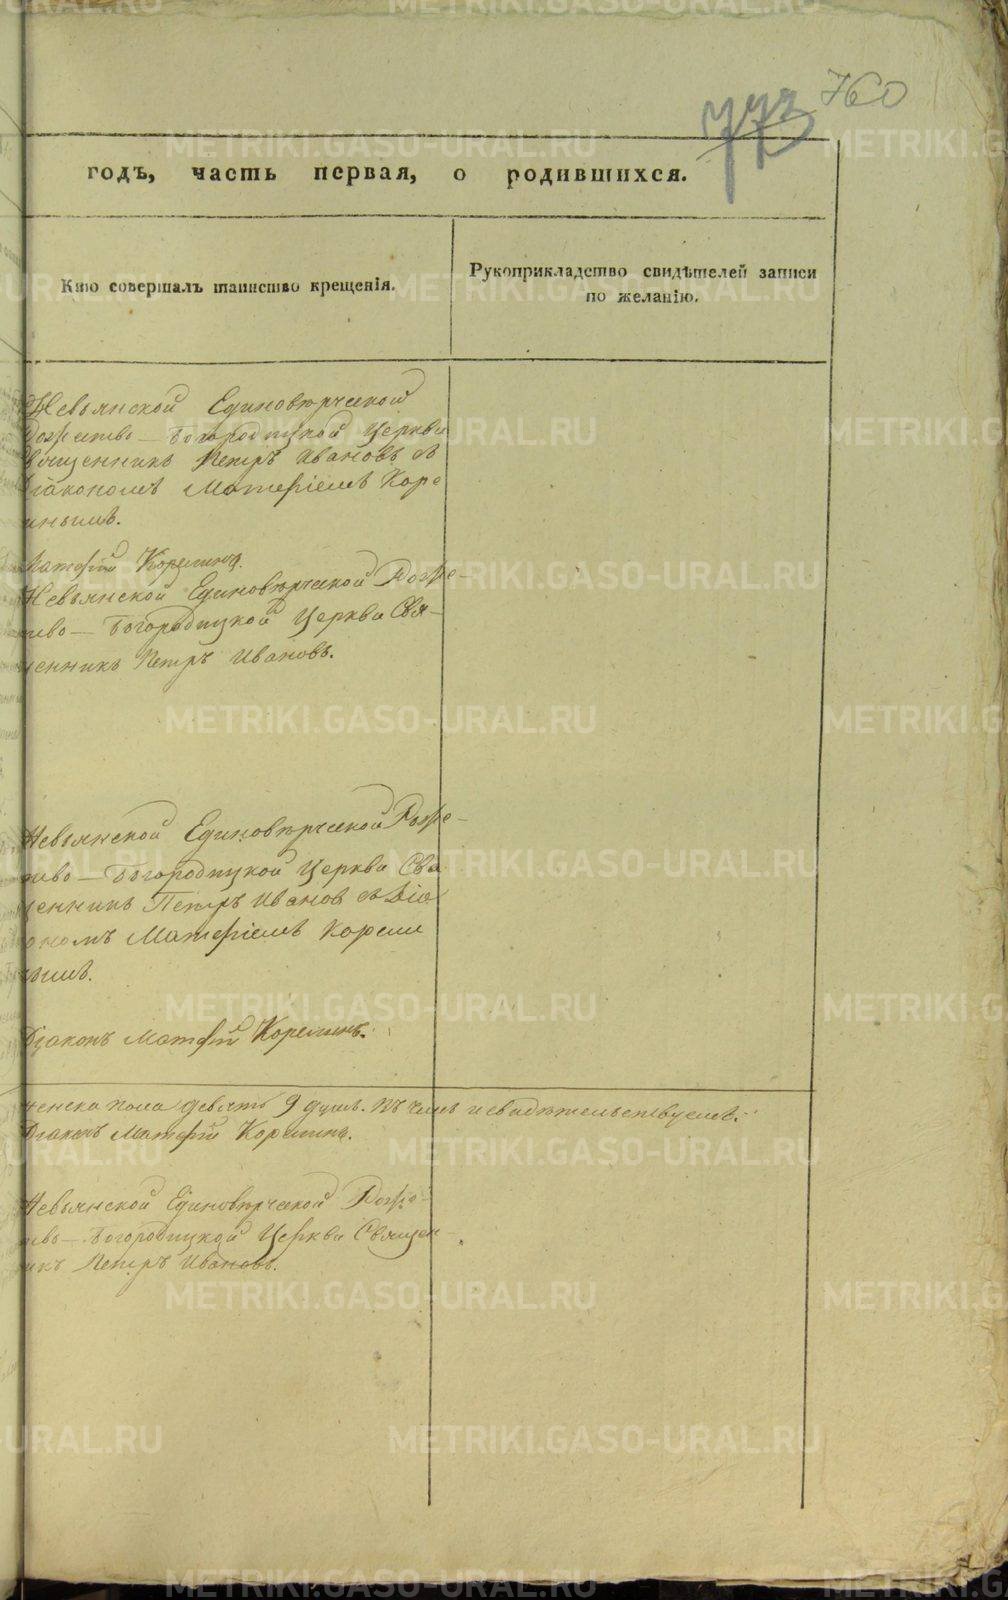 760
773
годъ, часть первая, о родившихся.
Кто совершалъ таинство крещенія.
Рукоприкладство свидѣтелей записи
по желанію.
Невьянской Единовѣрческой
Рожество-Богородицкой Церкви
Священникъ Петръ Ивановъ съ
Діакономъ Матфіемъ Коре
инымъ.
Матфій Корелинъ.
Невьянской Единовѣрческой Роже-
тво-Богородицкой Церкви Свя-
щенникъ Петръ Ивановъ.
Невьянской Единовѣрческой Роже-
тво-Богородицкой Церкви Свя
щенникъ Петръ Иванов съ Діа
кономъ Матфіемъ Корели
нымъ.
Діаконъ Матфій Корелинъ.
женска пола девять 9 душъ. Въ чемъ и свидѣтельствуемъ:
Діаконъ Матфій Корелинъ.
Невьянской Единовѣрческой Роже-
тво-Богородицкой Церкви Священ-
никъ Петръ Ивановъ.
METRIKI.GASO-URAL.RU